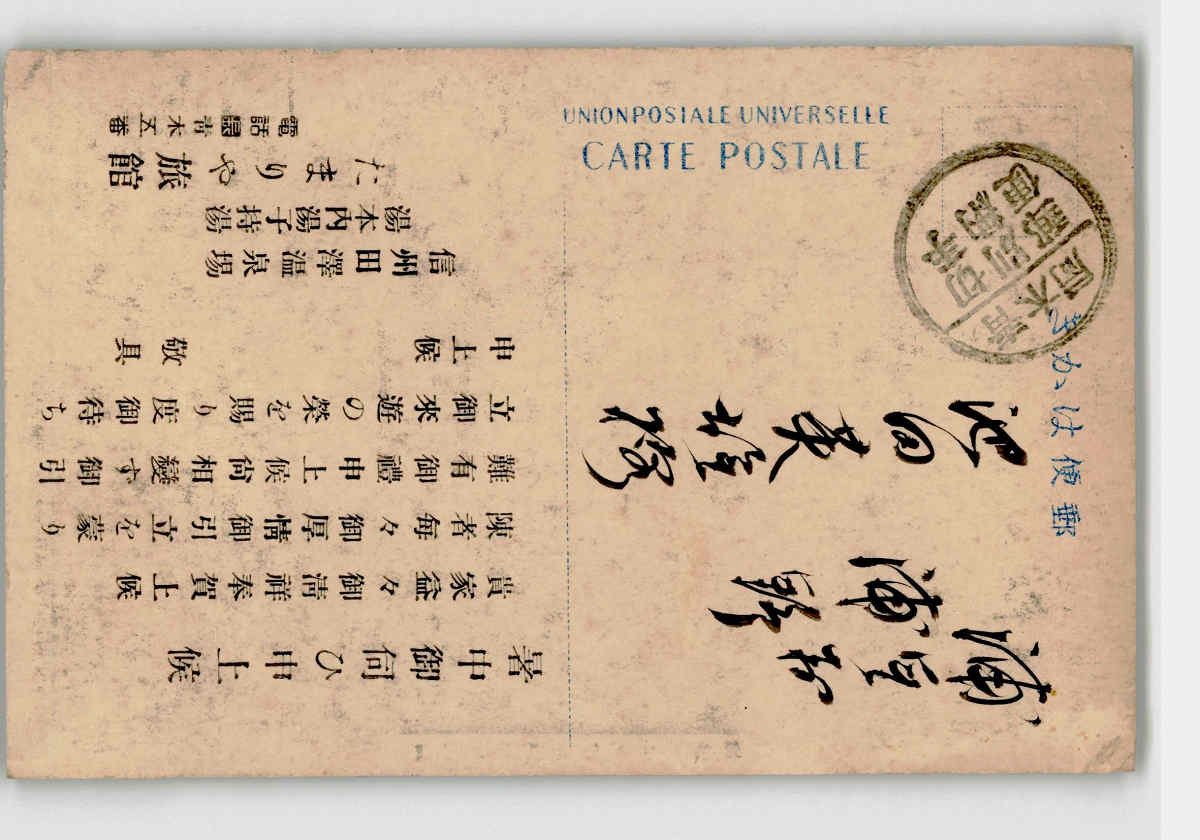 郵便はかき
UNIONPOSTALE UNIVERSELLE
CARTE POSTALE
青木局
浦里村
浦野
池田
様
暑中御伺ひ申上候
貴家益々御清祥奉賀上候
陳者毎々御厚情御引立を蒙り
難有御禮申上候尚相變ず御引
立御來遊の榮を賜り度御待ち
申上候 敬具
信州田澤温泉場
湯本内湯子持湯
たまりや旅館
電話 青木五番